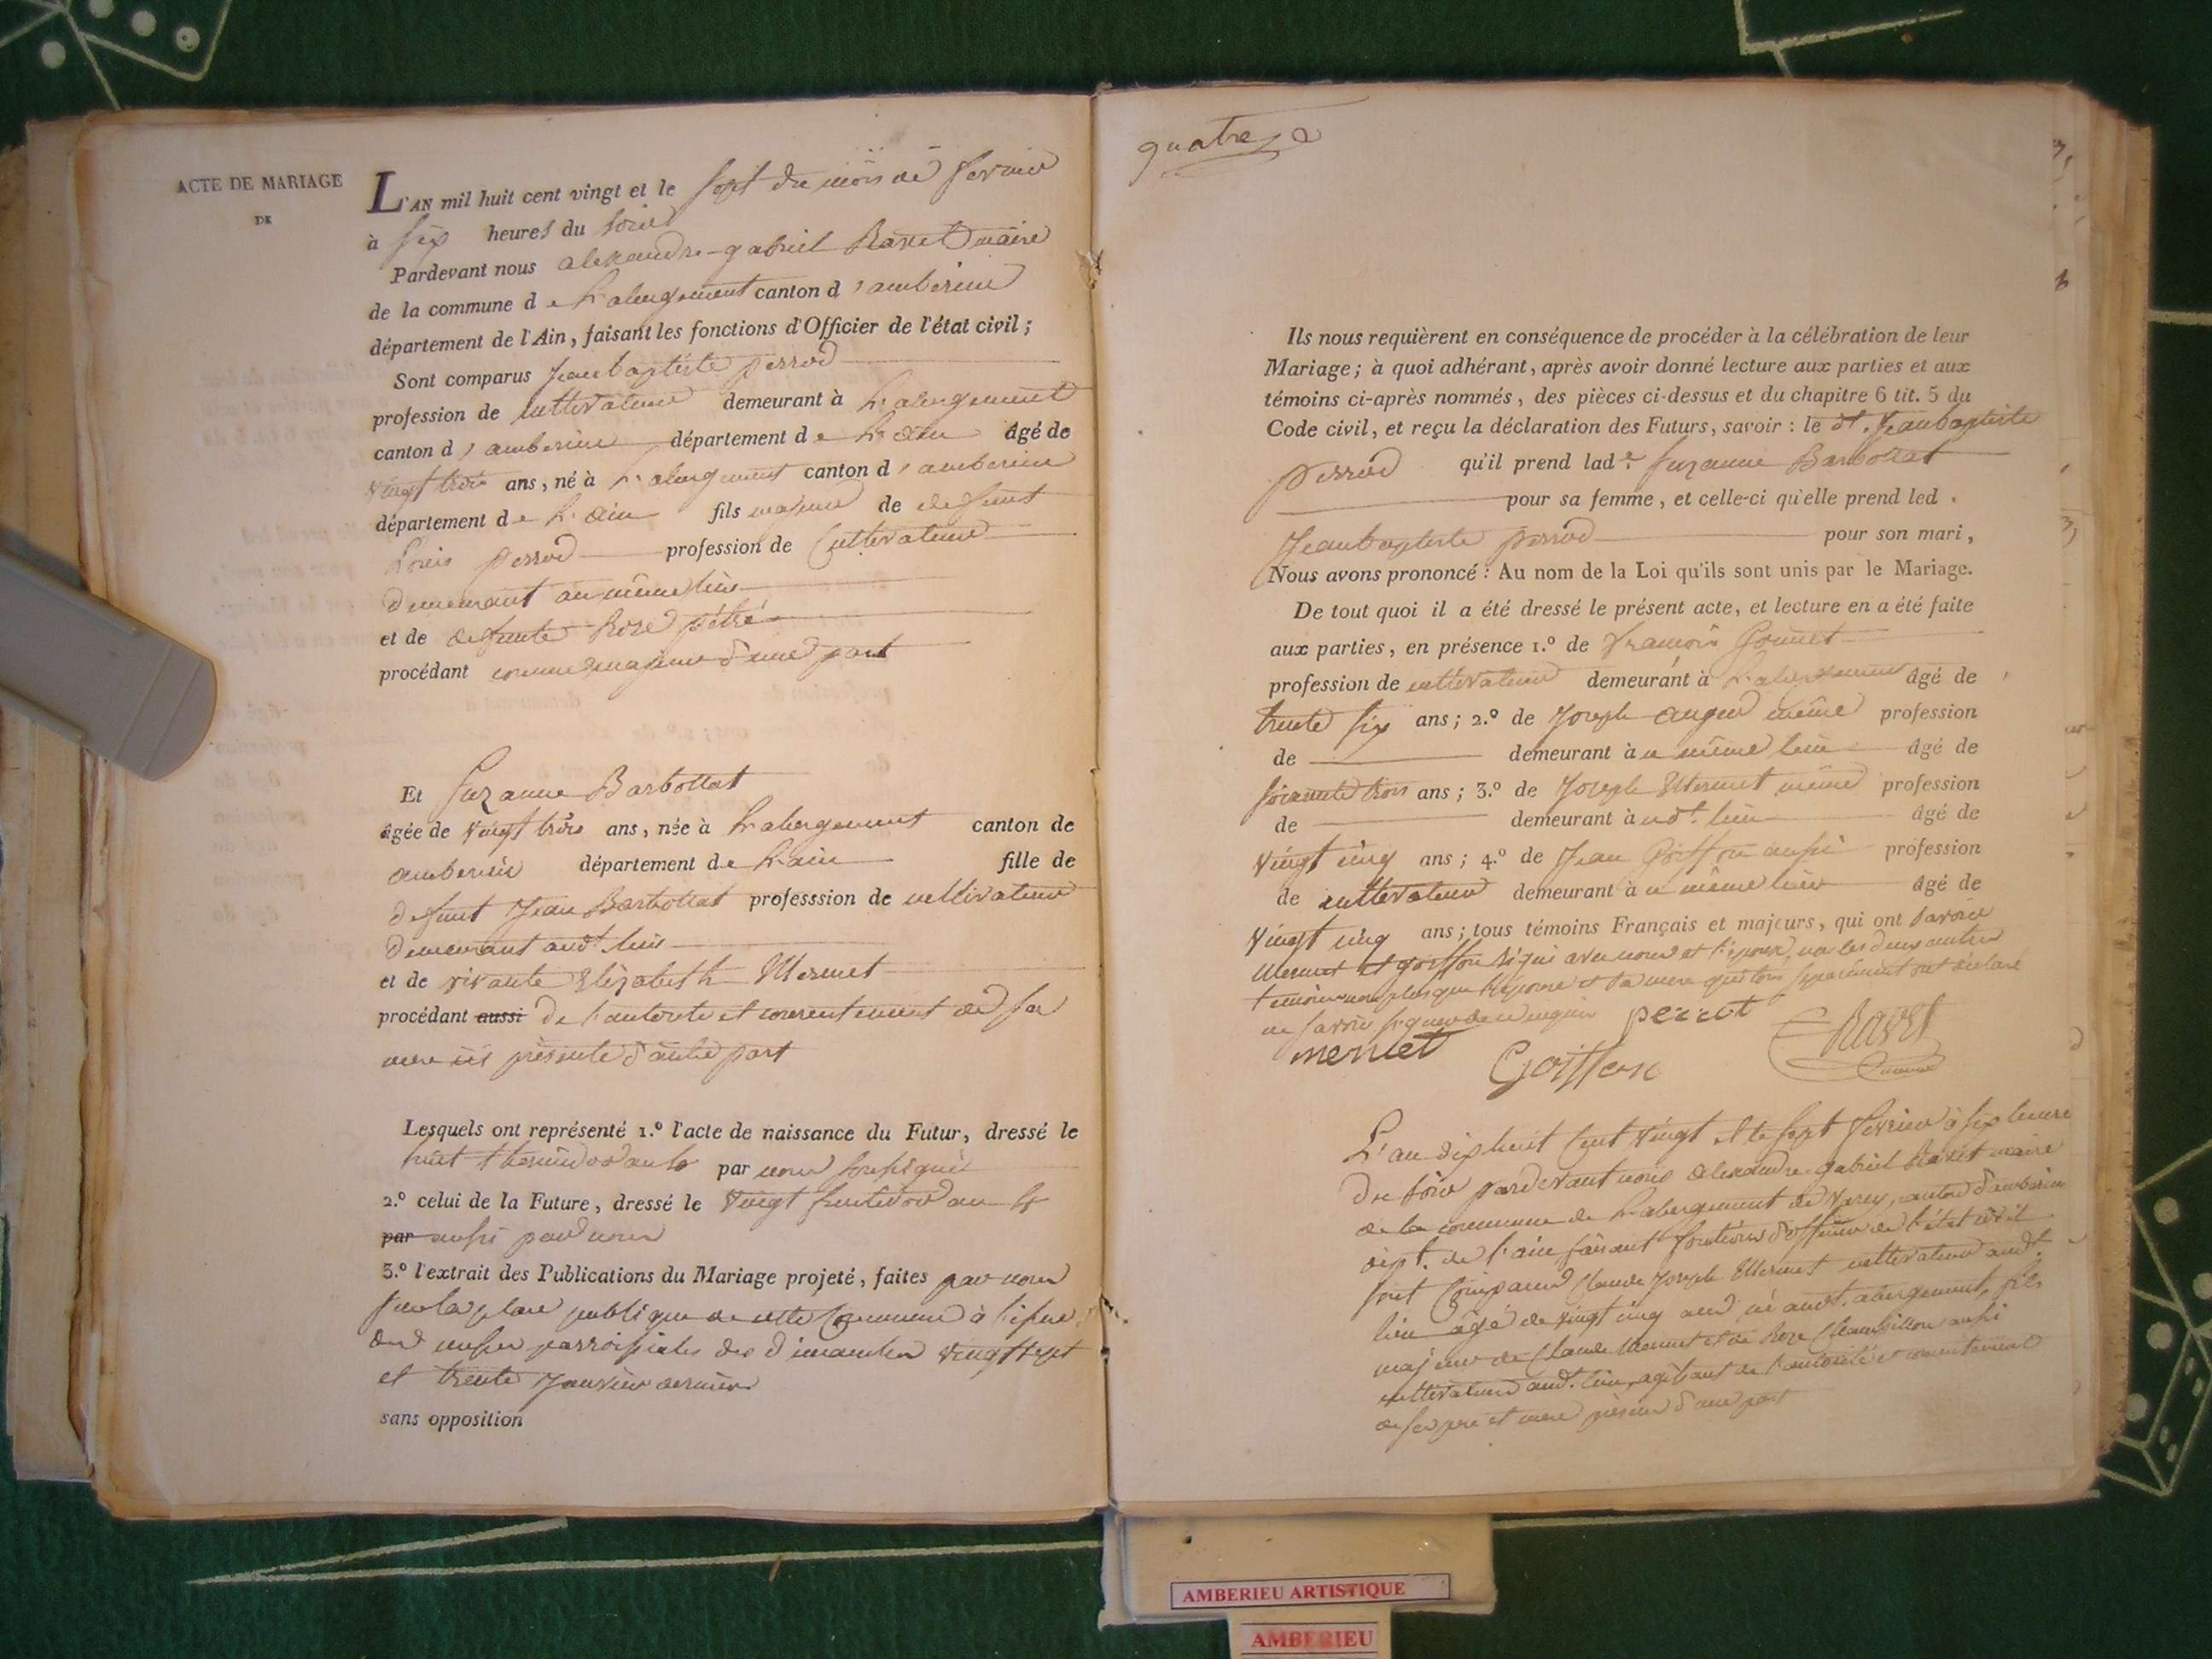 ACTE DE MARIAGE
DE
L'AN mil huit cent vingt et le sept du mois de fevrier
à six heures du soir
Pardevant nous alexandre-gabriel Ravet maire
de la commune de L'abergement canton d'amberieu
département de l'Ain, faisant les fonctions d'Officier de l'état civil;
Sont comparus Jeanbaptiste perrod
profession de cultivateur demeurant à L'abergement
canton d'amberieu département de L'ain âgé de
vingt trois ans, né à L'abergement canton d'amberieu
département de L'ain fils majeur de defunt
Louis perrod profession de Cultivateur
demeurant au même lieu
et de defunte Roze pétré
procédant comme majeur d'une part
Et Suzanne Barbollat
âgée de vingt trois ans, née à L'abergement canton de
amberieu département de L'ain fille de
defunt Jean Barbollat professsion de cultivateur
demeurant audt. lieu
et de vivante Elizabeth Mermet
procédant aussi de l'autorité et consentement de sa
mere ici présente d'autre part
Lesquels ont représenté 1.º l'acte de naissance du Futur, dressé le
huit thermidor an par nous soussigné
2.º celui de la Future, dressé le vingt fructidor an
par aussi par nous
3.º l'extrait des Publications du Mariage projeté, faites par nous
sur la place publique de cette Commune à l'issue
des messes parroissiales des dimanches vingt sept
et trente Janvier dernier
sans opposition
quatre
Ils nous requièrent en conséquence de procéder à la célébration de leur
Mariage; à quoi adhérant, après avoir donné lecture aux parties et aux
témoins ci-après nommés, des pièces ci-dessus et du chapitre 6 tit. 5 du
Code civil, et reçu la déclaration des Futurs, savoir: le dt. Jeanbaptiste
perrod qu'il prend lade. Suzanne Barbollat
pour sa femme, et celle-ci qu'elle prend led.
Jeanbaptiste perrod pour son mari,
Nous avons prononcé: Au nom de la Loi qu'ils sont unis par le Mariage.
De tout quoi il a été dressé le présent acte, et lecture en a été faite
aux parties, en présence 1.º de francois Gonnet
profession de cultivateur demeurant à L'abergement âgé de
trente six ans; 2.º de Joseph auger même profession
de demeurant à u même lieu âgé de
soixante trois ans; 3.º de Joseph Mermet même profession
de demeurant à udt. lieu âgé de
vingt cinq ans; 4.º de Jean Goiffon aussi profession
de cultivateur demeurant à u même lieu âgé de
vingt cinq ans; tous témoins Français et majeurs, qui ont savoir
Mermet et goiffon signé avec nous et l'époux, non les deux autres
temoins non plus que l'épouse et sa mere qui tous séparément ont déclaré
ne savoir signer de ce enquis perrot
mermet Goiffon Ravet
L'an dix huit Cent vingt et le sept fevrier à six heure
du soir pardevant nous alexandre-gabriel Ravet maire
de la commune de L'abergement de varey, canton d'amberieu
dept. de l'ain faisant fonctions d'officier de l'état civil
sont Comparus Claude Joseph Mermet cultivateur audt.
lieu âgé de vingt cinq ans né audt. abergement, fils
majeur de Claude Mermet et de Roze aussi
cultivateur audt. lieu, agissant de l'autorité et consentement
de ses pere et mere présens d'une part
AMBERIEU ARTISTIQUE
AMBERIEU